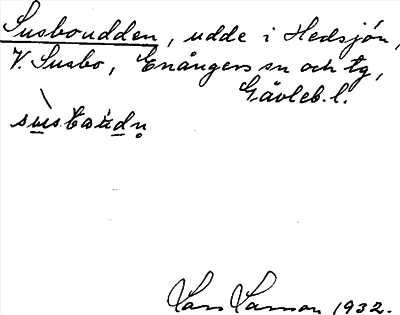 Susboudden, udde i Hedsjön,
V. Susbo, Enångers sn och tg,
Gävleb. l.
Lars Larson 1932.